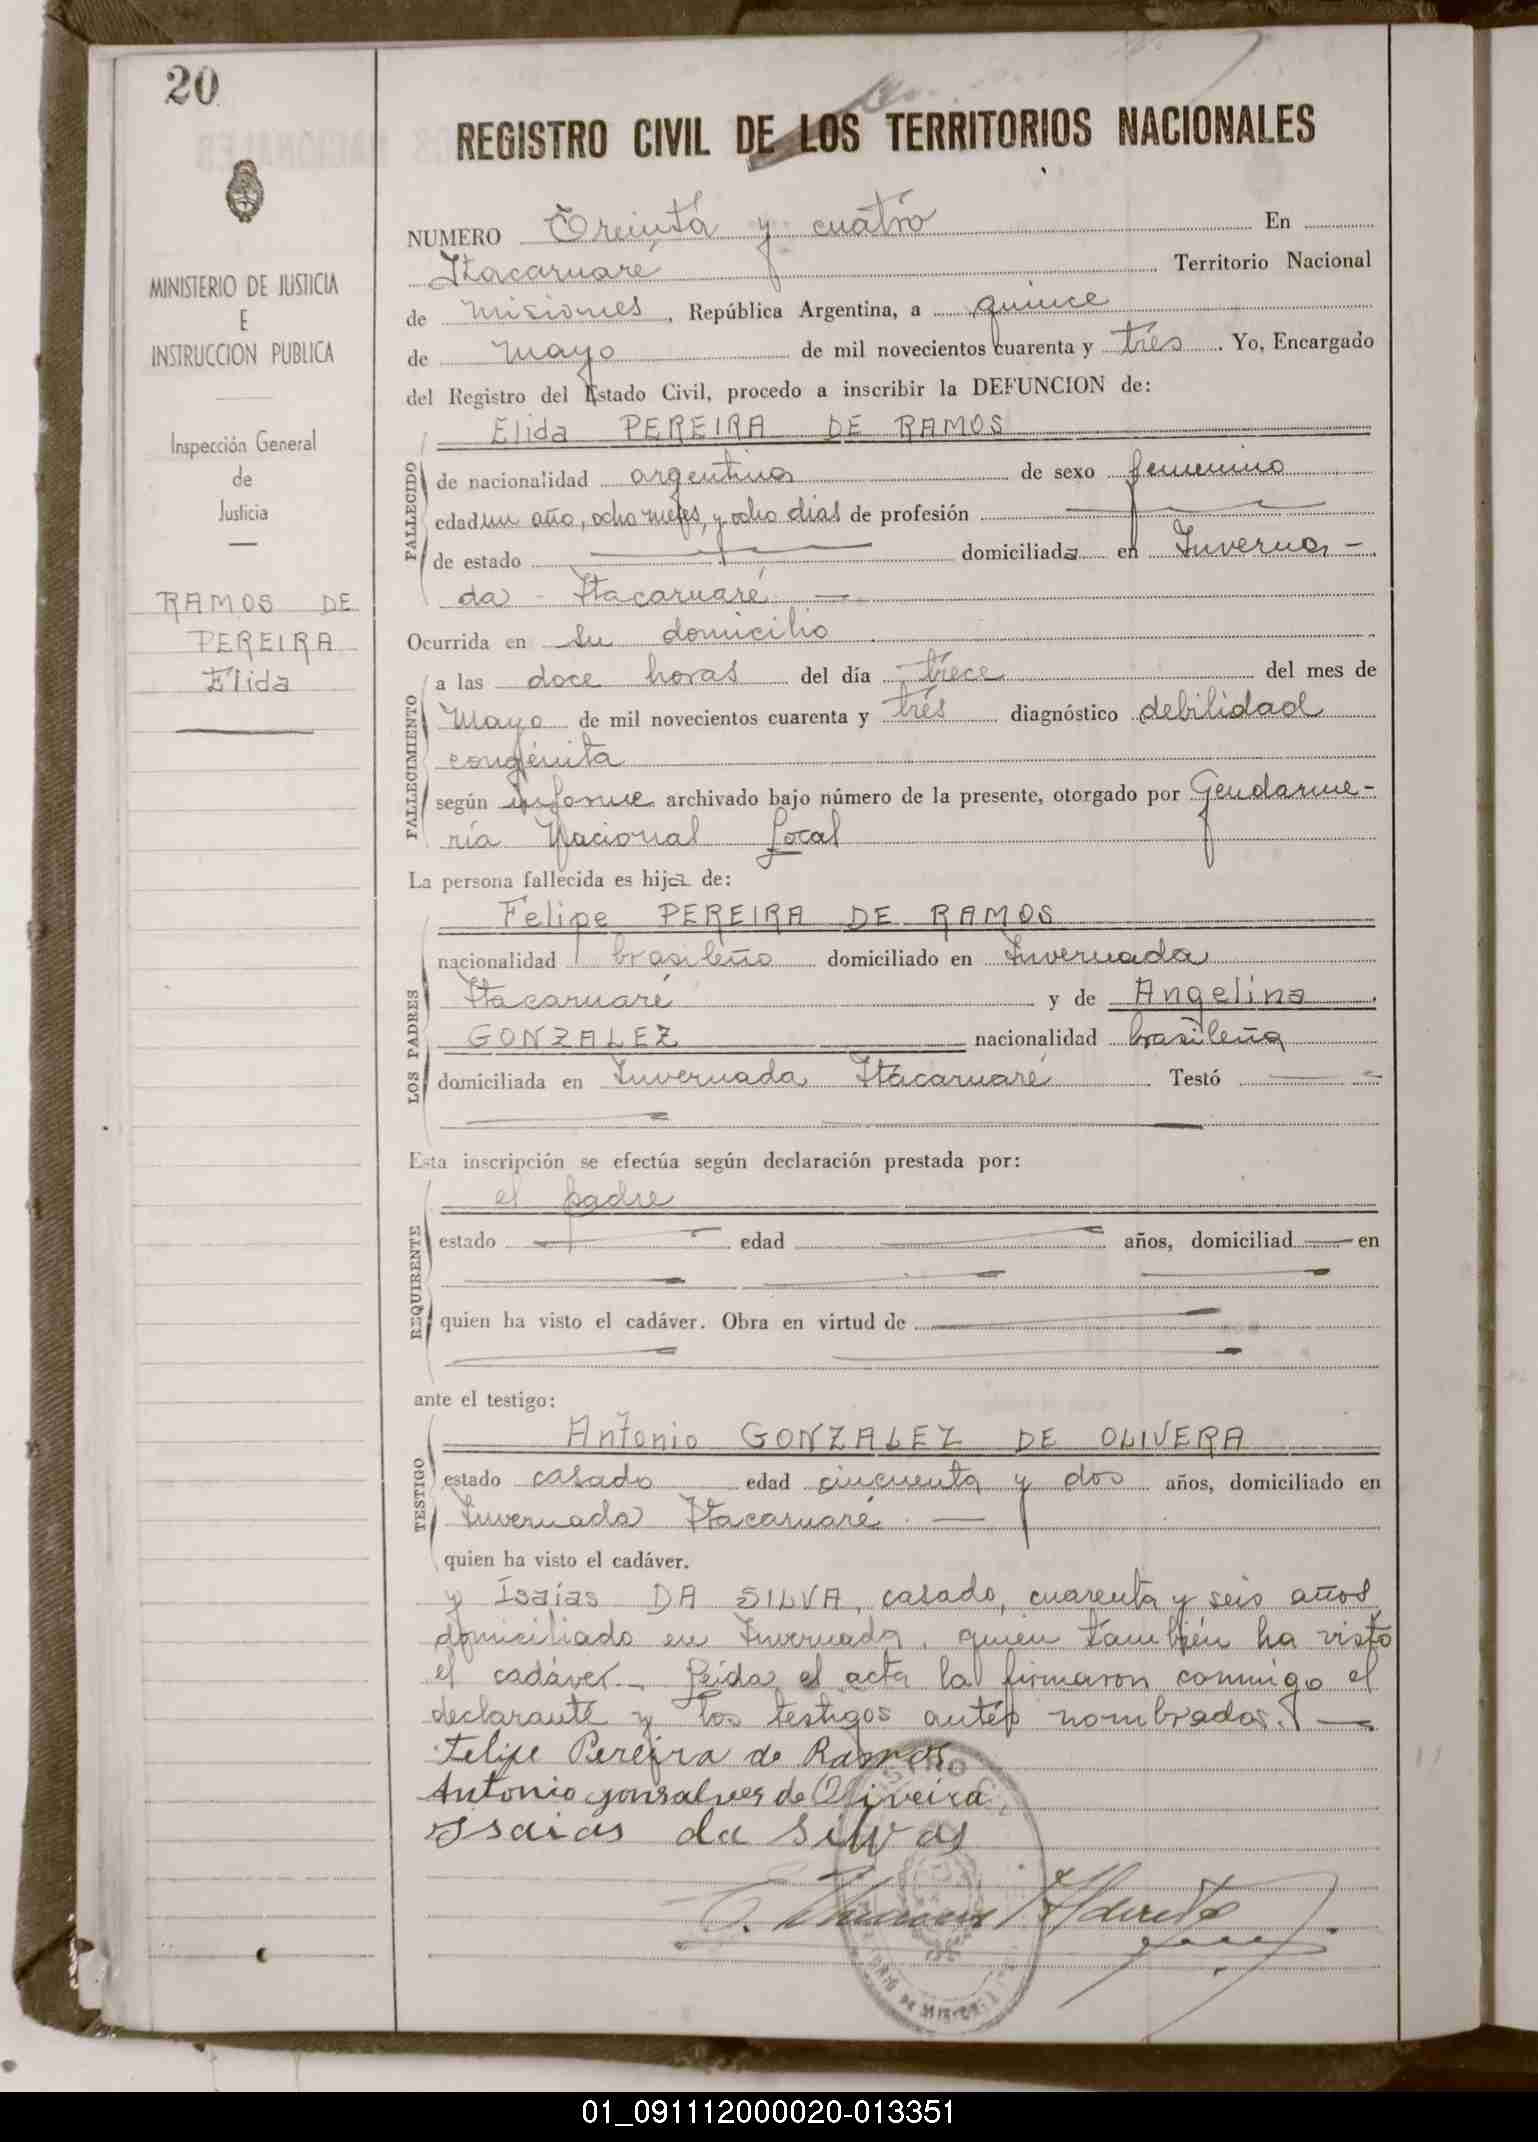 20
REGISTRO CIVIL DE LOS TERRITORIOS NACIONALES
MINISTERIO DE JUSTICIA
E
INSTRUCCION PUBLICA
Inspección General
de
Justicia
RAMOS DE
PEREIRA
Elida
NUMERO Treinta y cuatro En
Itacaruaré Territorio Nacional
de Misiones, República Argentina, a quince
de Mayo de mil novecientos cuarenta y tres. Yo, Encargado
del Registro del Estado Civil, procedo a inscribir la DEFUNCION de:
Elida PEREIRA DE RAMOS
FALLECIDO
de nacionalidad argentina de sexo femenino
edad un año, ocho meses, y ocho dias de profesión
de estado domiciliada en Inverna-
da - Itacaruaré
Ocurrida en su domicilio
FALLECIMIENTO
a las doce horas del día trece del mes de
Mayo de mil novecientos cuarenta y trés diagnóstico debilidad
congénita
según informe archivado bajo número de la presente, otorgado por Gendarme-
ría Nacional Local
La persona fallecida es hija de:
LOS PADRES
Felipe PEREIRA DE RAMOS
nacionalidad brasileño domiciliado en Invernada
Itacaruaré y de Angelina
GONZALEZ nacionalidad brasileña
domiciliada en Invernada Itacaruaré Testó
Esta inscripción se efectúa según declaración prestada por:
REQUIRENTE
el padre
estado edad años, domiciliad en
quien ha visto el cadáver. Obra en virtud de
ante el testigo:
TESTIGO
Antonio GONZALEZ DE OLIVERA
estado casado edad cincuenta y dos años, domiciliado en
Invernada Itacaruaré.
quien ha visto el cadáver.
y Isaías DA SILVA, casado, cuarenta y seis años
domiciliado en Invernada, quien también ha visto
el cadáver. Leída el acta la firmaron conmigo el
declarante y los testigos antes nombrados.
Felipe Pereira de Ramos
Antonio gonsalves de Oliveira
Isaias da Silva
01_091112000020-013351